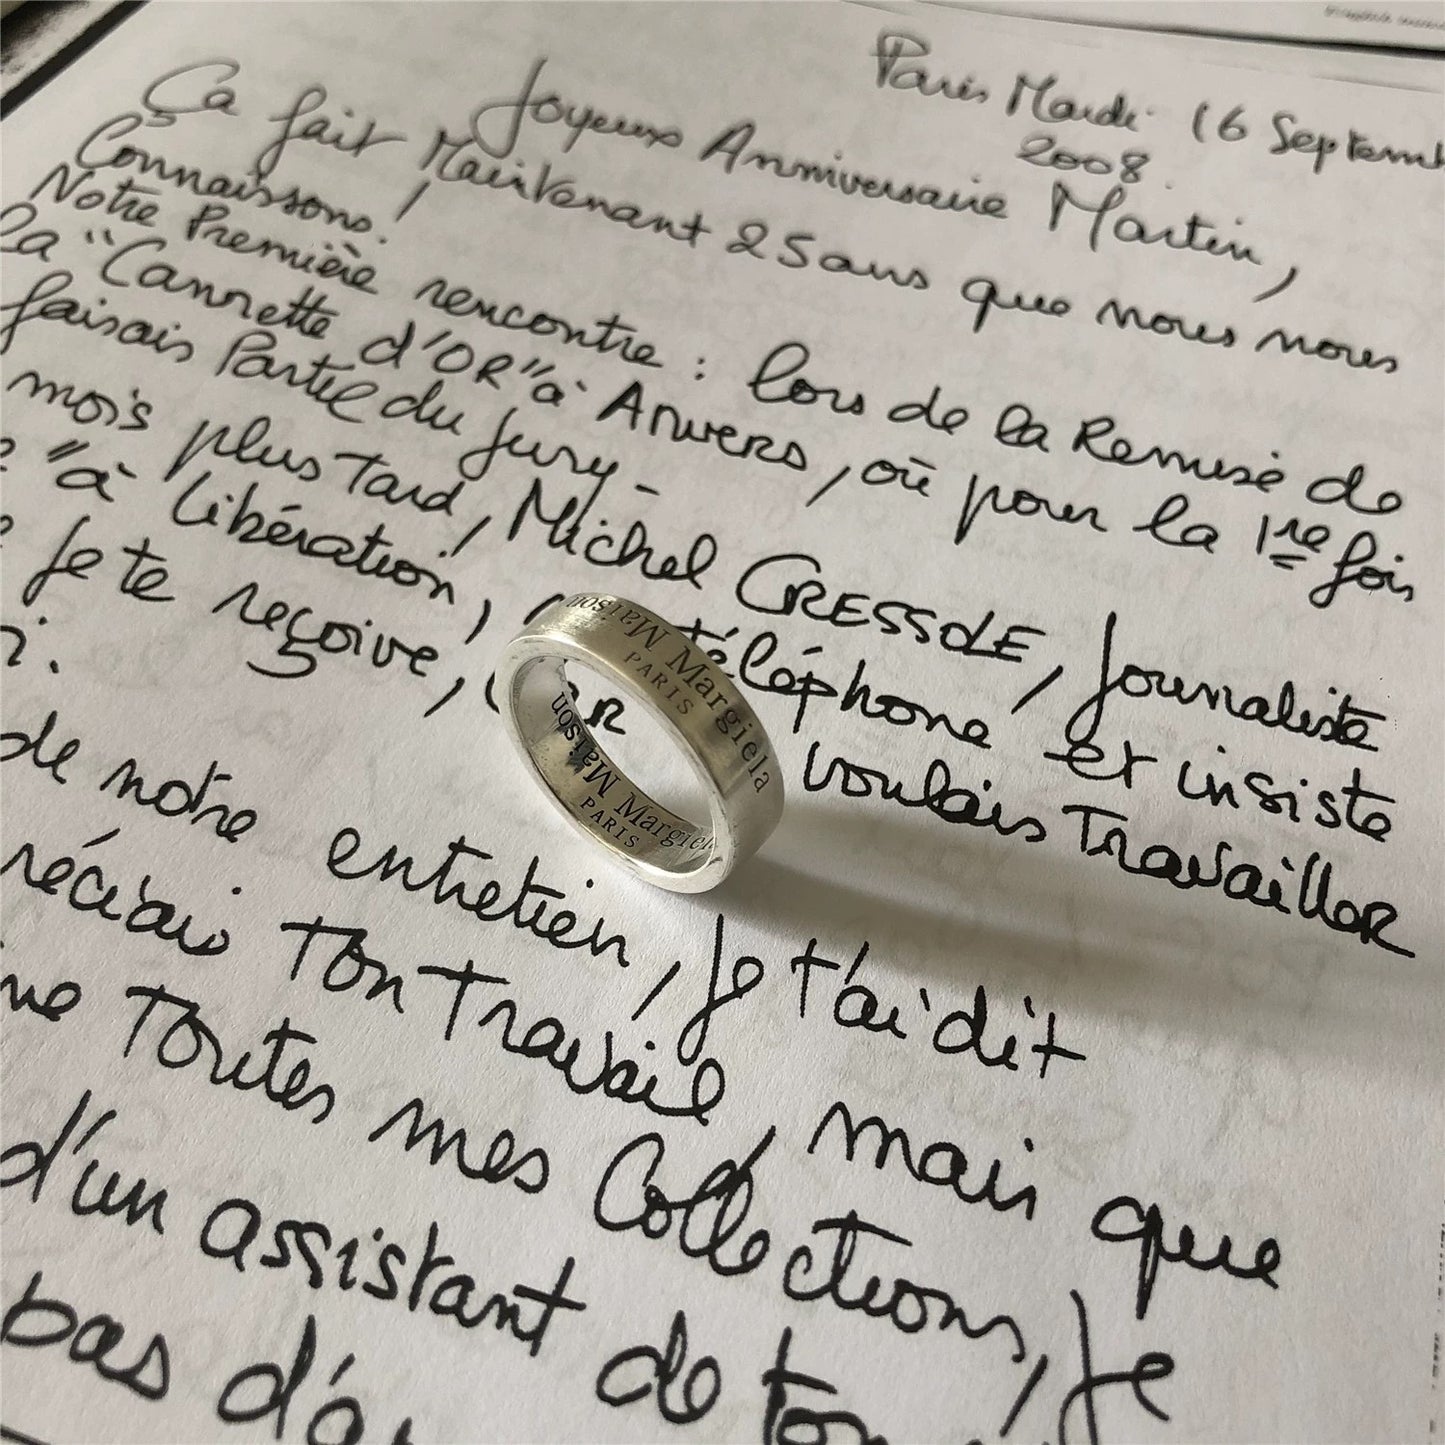 Paris Mardi 16 Septemb
2008.
Joyeux Anniversaire Martin,
Ça fait Maintenant 25 ans que nous nous
Connaissons !
Notre Première rencontre : lors de la Remise de
la "Cannette d'OR" à Anvers, où pour la 1re fois
faisais Partie du Jury_
mois plus Tard, Michel CRESSOLE, Journaliste
" à Libération, téléphone et insiste
Je te reçoive, voulais Travailler
i.
de notre entretien, Je t'ai dit
réciais Ton Travail, mais que
Toutes mes Collections, Je
d'un assistant de ton
bas d'a
Maison Margiela
PARIS
Maison Margiela
PARIS